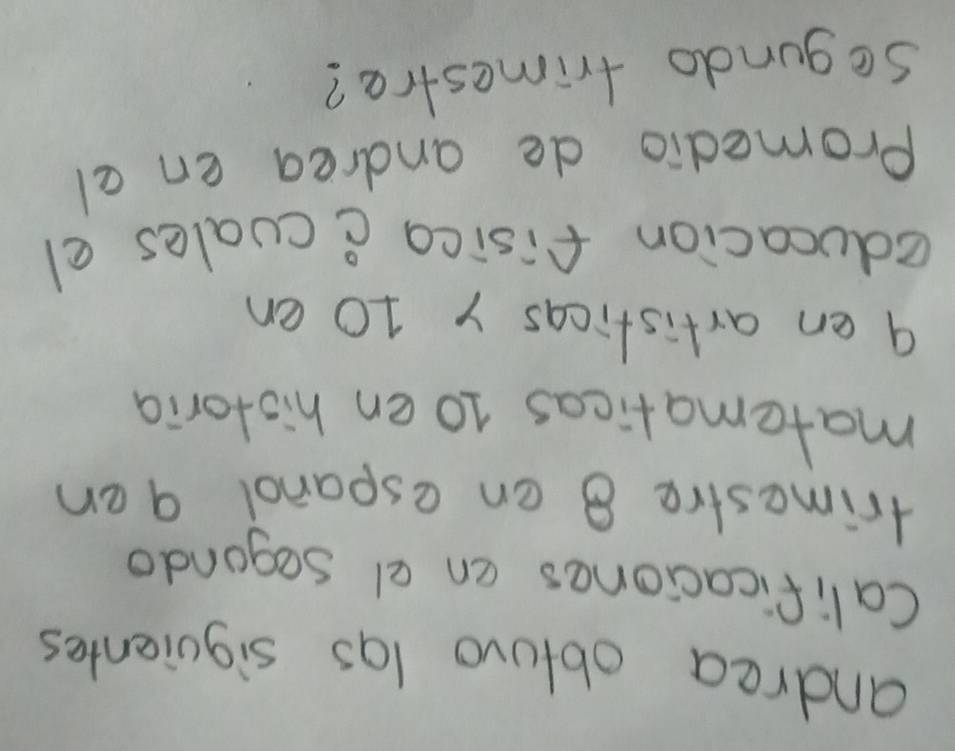 andrea obtuvo las siguientes
calificaciones en el segundo
trimestre 8 en español 9 en
matematicas 10 en historia
9 en artisticas y 10 en
educacion fisica ¿cuales el
promedio de andrea en el
segundo trimestre?